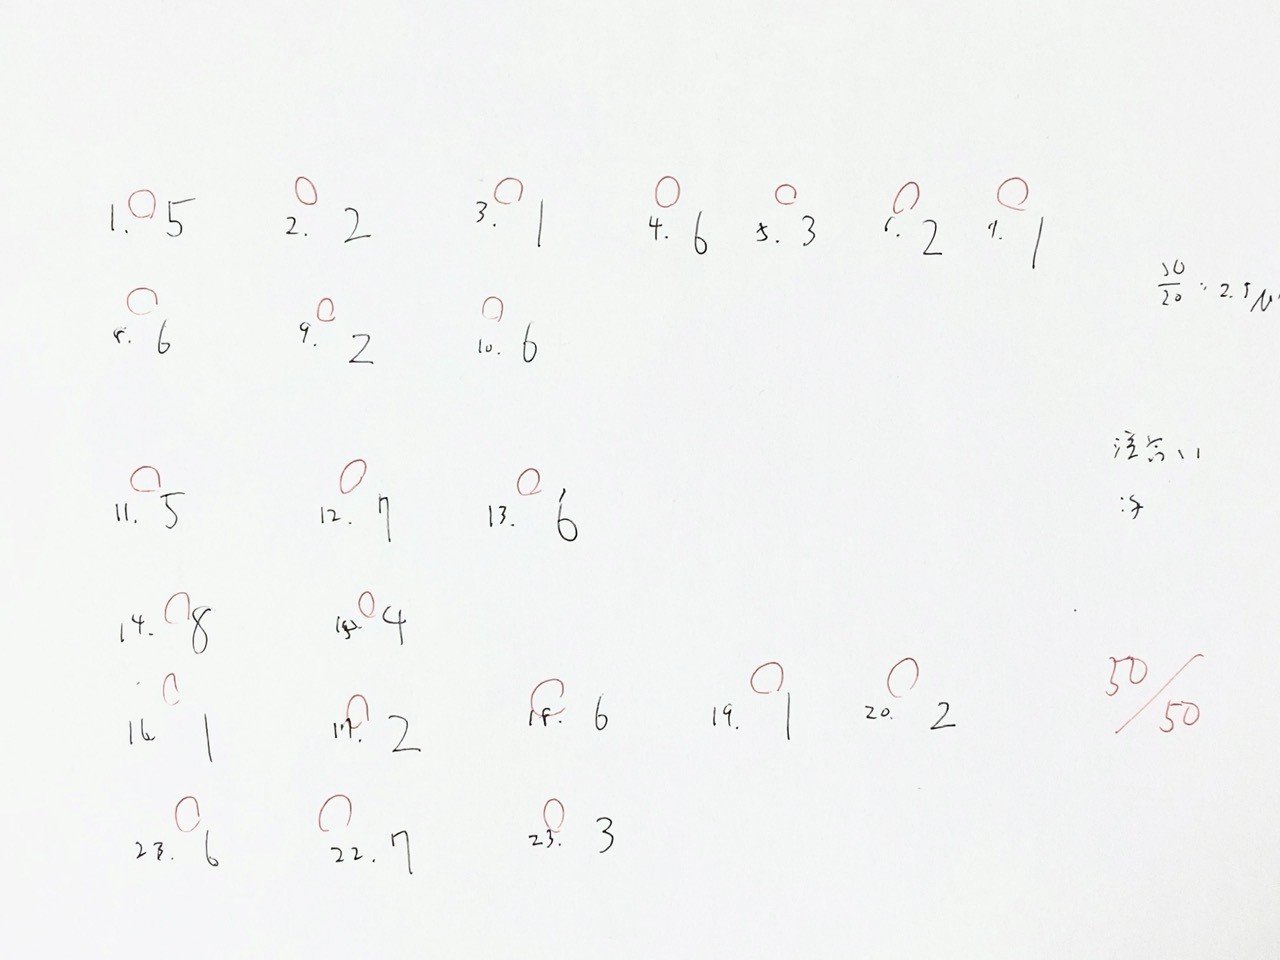 1. 5 2. 2 3. 1 4. 6 5. 3 6. 2 7. 1
8. 6 9. 2 10. 6
11. 5 12. 7 13. 6
14. 8 15. 4
16 1 17. 2 18. 6 19. 1 20. 2
23. 6 22. 7 23. 3
50
20
2.5
50/50